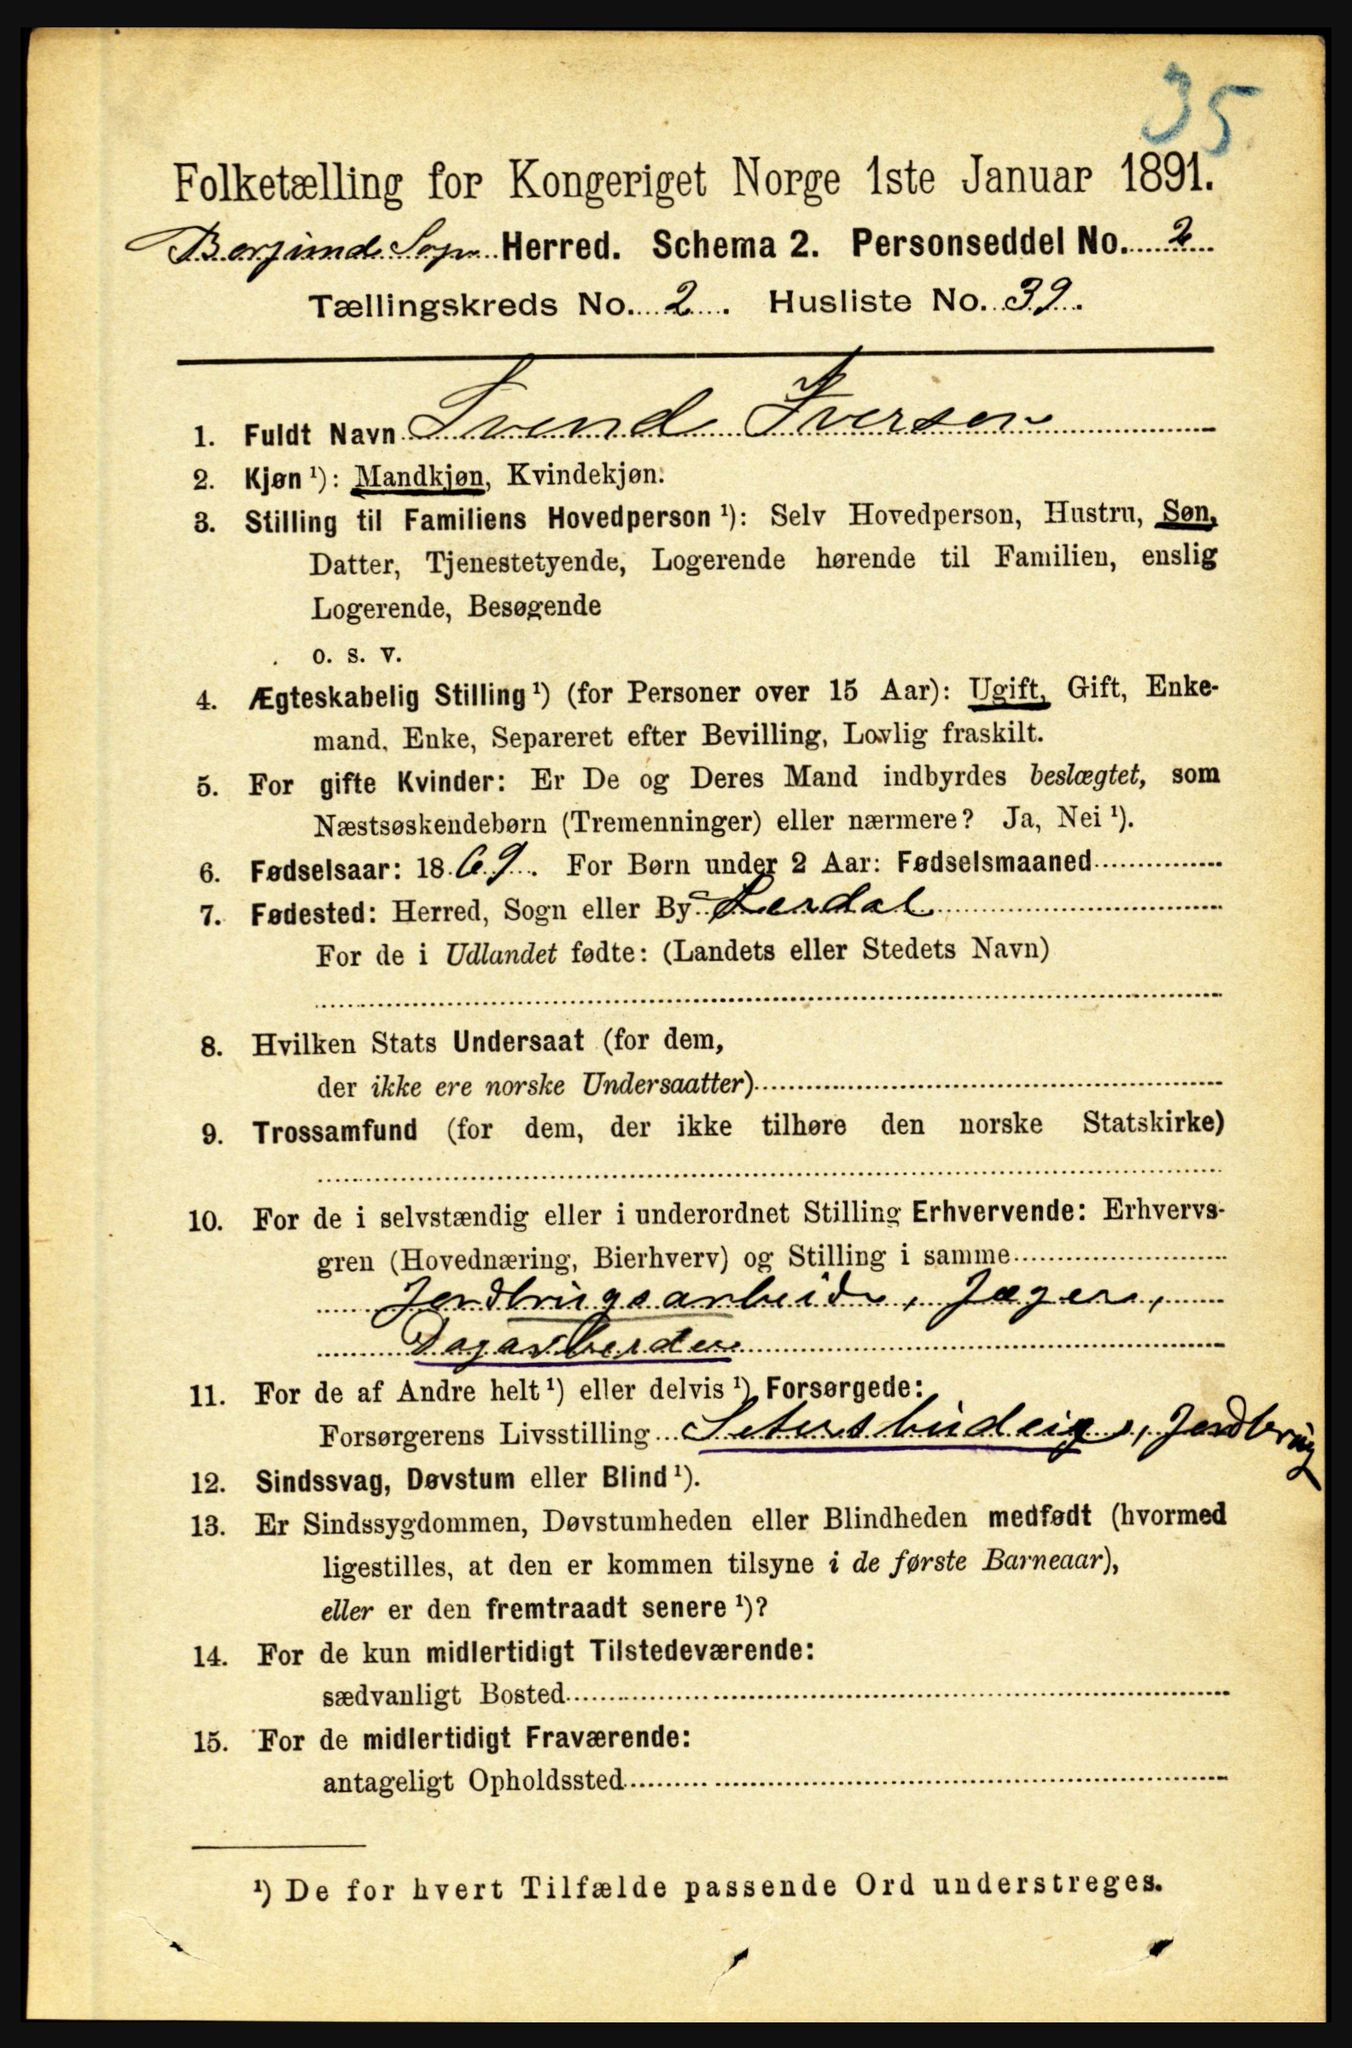 35
Folketælling for Kongeriget Norge 1ste Januar 1891.
Borgund Sogn Herred. Schema 2. Personseddel No. 2
Tællingskreds No. 2. Husliste No. 39.
1. Fuldt Navn Svend Iversen
2. Kjøn ¹): Mandkjøn, Kvindekjøn.
3. Stilling til Familiens Hovedperson ¹): Selv Hovedperson, Hustru, Søn,
Datter, Tjenestetyende, Logerende hørende til Familien, enslig
Logerende, Besøgende
o. s. v.
4. Ægteskabelig Stilling ¹) (for Personer over 15 Aar): Ugift, Gift, Enke-
mand, Enke, Separeret efter Bevilling, Lovlig fraskilt.
5. For gifte Kvinder: Er De og Deres Mand indbyrdes beslægtet, som
Næstsøskendebørn (Tremenninger) eller nærmere? Ja, Nei ¹).
6. Fødselsaar: 1869. For Børn under 2 Aar: Fødselsmaaned
7. Fødested: Herred, Sogn eller By Lerdal
For de i Udlandet fødte: (Landets eller Stedets Navn)
8. Hvilken Stats Undersaat (for dem,
der ikke ere norske Undersaatter)
9. Trossamfund (for dem, der ikke tilhøre den norske Statskirke)
10. For de i selvstændig eller i underordnet Stilling Erhvervende: Erhvervs-
gren (Hovednæring, Bierhverv) og Stilling i samme
Jordbrugsarbeide, Jæger,
Dagarbeider
11. For de af Andre helt ¹) eller delvis ¹) Forsørgede:
Forsørgerens Livsstilling Setersbudeig, Jordbrug
12. Sindssvag, Døvstum eller Blind ¹).
13. Er Sindssygdommen, Døvstumheden eller Blindheden medfødt (hvormed
ligestilles, at den er kommen tilsyne i de første Barneaar),
eller er den fremtraadt senere ¹)?
14. For de kun midlertidigt Tilstedeværende:
sædvanligt Bosted
15. For de midlertidigt Fraværende:
antageligt Opholdssted
¹) De for hvert Tilfælde passende Ord understreges.